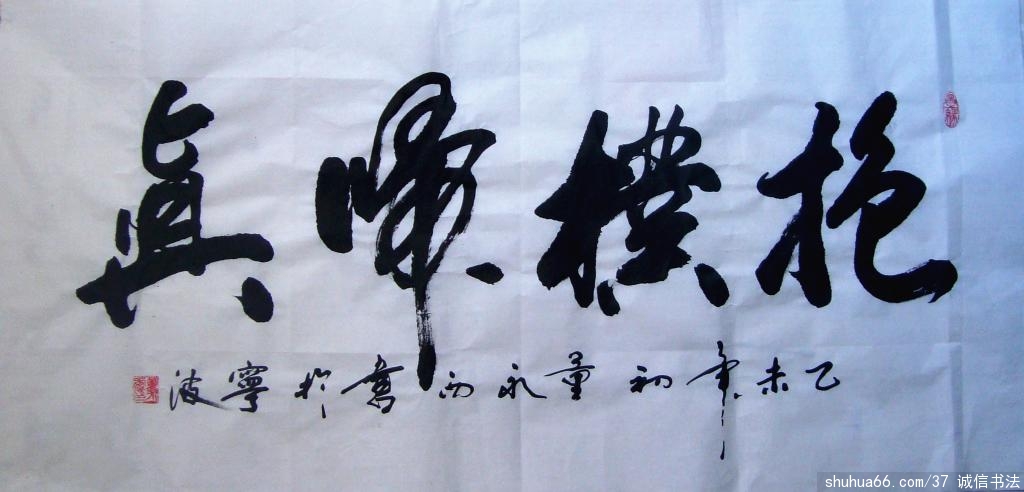 抱樸歸真
乙未年初量永西書於寧波
shuhua66.com/37 诚信书法